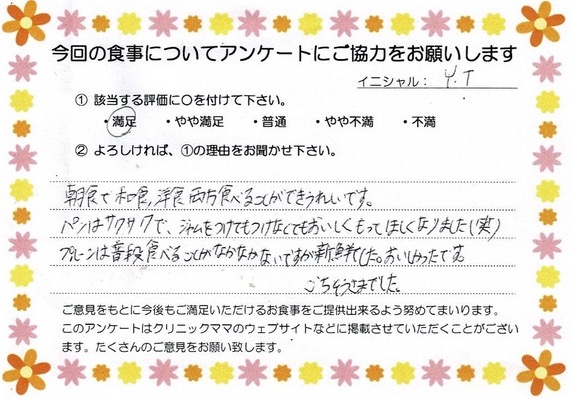 今回の食事についてアンケートにご協力をお願いします
イニシャル： Y.T
① 該当する評価に○を付けて下さい。
・満足 ・やや満足 ・普通 ・やや不満 ・不満
② よろしければ、①の理由をお聞かせ下さい。
朝食で和食、洋食両方食べることができうれしいです。
パンはサクサクで、ジャムをつけてもつけなくてもおいしくもってほしくなりました(笑)
プルーンは普段食べることがなかなかないですが新鮮でした。おいしかったです。
ごちそうさまでした。
ご意見をもとに今後もご満足いただけるお食事をご提供出来るよう努めてまいります。
このアンケートはクリニックママのウェブサイトなどに掲載させていただくことがござい
ます。たくさんのご意見をお願い致します。